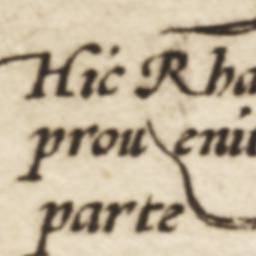 Hic Rha
prou eniu
parte